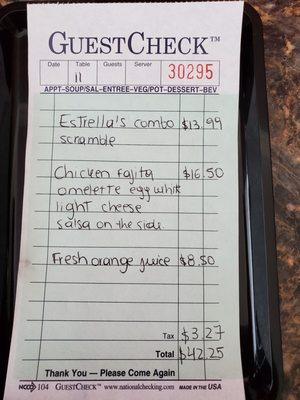 GUESTCHECK™
Date Table Guests Server
11 30295
APPT-SOUP/SAL-ENTREE-VEG/POT-DESSERT-BEV
Estrella's combo $13.99
scramble
Chicken fajita $16.50
omelette egg whit
light cheese
salsa on the side
Fresh orange juice $8.50
Tax $3.27
Total $42.25
Thank You — Please Come Again
NCCO 104 GUESTCHECK™ www.nationalchecking.com MADE IN THE USA